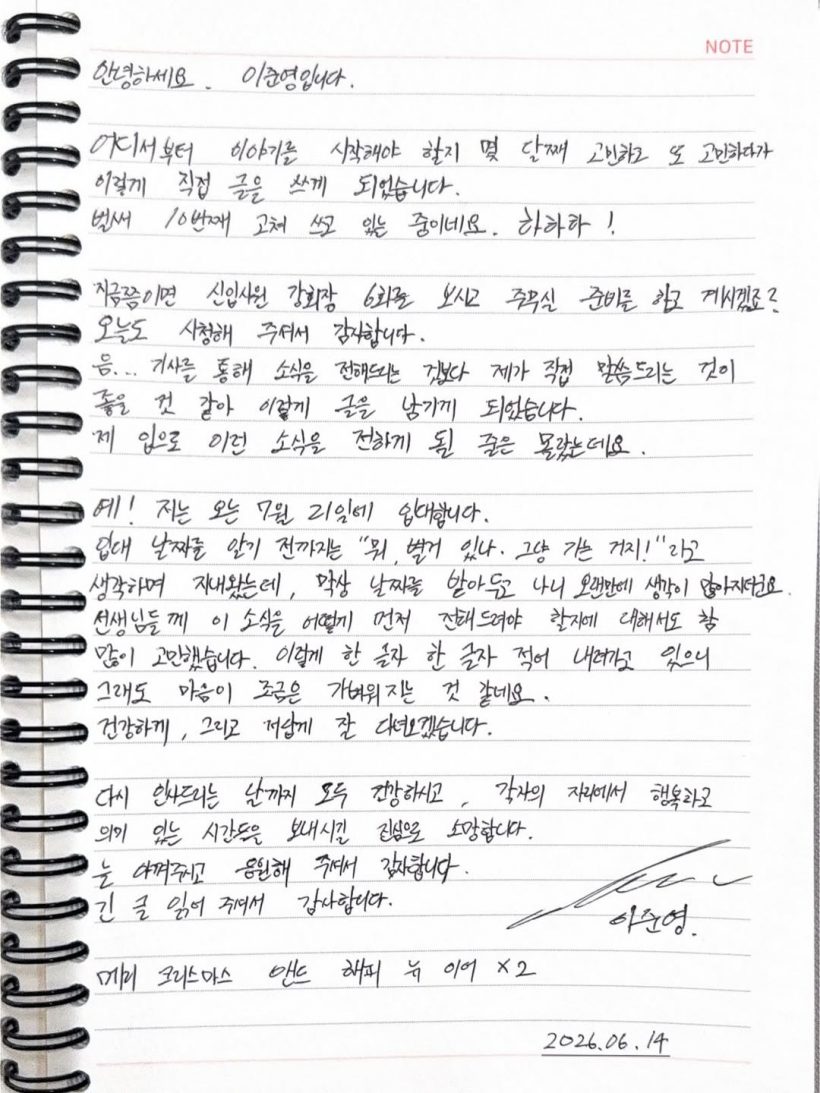 NOTE
안녕하세요. 이준영입니다.
어디서부터 이야기를 시작해야 할지 몇 달째 고민하고 또 고민하다가
이렇게 직접 글을 쓰게 되었습니다.
벌써 10번째 고쳐 쓰고 있는 중이네요. 하하하!
지금쯤이면 신입사원 강회장 6화를 보시고 주무실 준비를 하고 계시겠죠?
오늘도 시청해 주셔서 감사합니다.
음... 기사를 통해 소식을 전해드리는 것보다 제가 직접 말씀드리는 것이
좋을 것 같아 이렇게 글을 남기게 되었습니다.
제 입으로 이런 소식을 전하게 될 줄은 몰랐는데요.
예! 저는 오는 7월 21일에 입대합니다.
입대 날짜를 알기 전까지는 "뭐, 별거 있나. 그냥 가는 거지!"라고
생각하며 지내왔는데, 막상 날짜를 받아두고 나니 오랜만에 생각이 많아지더군요.
선생님들께 이 소식을 어떻게 먼저 전해드려야 할지에 대해서도 참
많이 고민했습니다. 이렇게 한 글자 한 글자 적어 내려가고 있으니
그래도 마음이 조금은 가벼워지는 것 같네요.
건강하게, 그리고 저답게 잘 다녀오겠습니다.
다시 인사드리는 날까지 모두 건강하시고, 각자의 자리에서 행복하고
의미 있는 시간들을 보내시길 진심으로 소망합니다.
늘 아껴주시고 응원해 주셔서 감사합니다.
긴 글 읽어 주셔서 감사합니다.
이준영.
메리 크리스마스 앤드 해피 뉴 이어 X2
2026.06.14